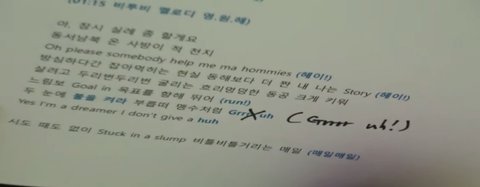 (01:15 비투비 멜로디 영.원.해)
아, 잠시 실례 좀 할게요
동서남북 온 사방이 적 천지
Oh please somebody help me ma hommies (헤이!)
방심하다간 잡아먹히는 현실 동해보다 더 짠 내 나는 Story (헤이!)
살려고 두리번두리번 굴리는 흐리멍덩한 동공 크게 키워
느림보 Goal in 목표를 향해 뛰어 (run!)
두 눈에 불을 켜라 부릅떠 맹수처럼 Grrr uh (Grrrr uh!)
Yes I'm a dreamer I don't give a huh
시도 때도 없이 Stuck in a slump 비틀비틀거리는 매일 (매일매일)